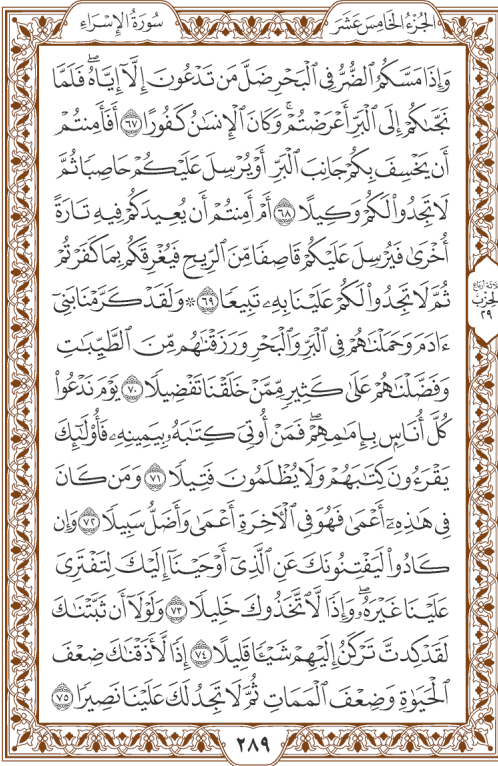 الجُزْءُ الخَامِسَ عَشَرَ
سُورَةُ الإِسْرَاءِ
وَإِذَا مَسَّكُمُ ٱلضُّرُّ فِي ٱلْبَحْرِ ضَلَّ مَن تَدْعُونَ إِلَّآ إِيَّاهُۖ فَلَمَّا
نَجَّىٰكُمْ إِلَى ٱلْبَرِّ أَعْرَضْتُمْۚ وَكَانَ ٱلْإِنسَٰنُ كَفُورًا ٦٧ أَفَأَمِنتُمْ
أَن يَخْسِفَ بِكُمْ جَانِبَ ٱلْبَرِّ أَوْ يُرْسِلَ عَلَيْكُمْ حَاصِبًا ثُمَّ
لَا تَجِدُوا۟ لَكُمْ وَكِيلًا ٦٨ أَمْ أَمِنتُمْ أَن يُعِيدَكُمْ فِيهِ تَارَةً
أُخْرَىٰ فَيُرْسِلَ عَلَيْكُمْ قَاصِفًا مِّنَ ٱلرِّيحِ فَيُغْرِقَكُم بِمَا كَفَرْتُمْ
ثُمَّ لَا تَجِدُوا۟ لَكُمْ عَلَيْنَا بِهِۦ تَبِيعًا ٦٩ ۞ وَلَقَدْ كَرَّمْنَا بَنِىٓ
ءَادَمَ وَحَمَلْنَٰهُمْ فِي ٱلْبَرِّ وَٱلْبَحْرِ وَرَزَقْنَٰهُم مِّنَ ٱلطَّيِّبَٰتِ
وَفَضَّلْنَٰهُمْ عَلَىٰ كَثِيرٍ مِّمَّنْ خَلَقْنَا تَفْضِيلًا ٧٠ يَوْمَ نَدْعُوا۟
كُلَّ أُنَاسٍۭ بِإِمَٰمِهِمْۖ فَمَنْ أُوتِىَ كِتَٰبَهُۥ بِيَمِينِهِۦ فَأُو۟لَٰٓئِكَ
يَقْرَءُونَ كِتَٰبَهُمْ وَلَا يُظْلَمُونَ فَتِيلًا ٧١ وَمَن كَانَ
فِي هَٰذِهِۦٓ أَعْمَىٰ فَهُوَ فِي ٱلْءَاخِرَةِ أَعْمَىٰ وَأَضَلُّ سَبِيلًا ٧٢ وَإِن
كَادُوا۟ لَيَفْتِنُونَكَ عَنِ ٱلَّذِىٓ أَوْحَيْنَآ إِلَيْكَ لِتَفْتَرِىَ
عَلَيْنَا غَيْرَهُۥۖ وَإِذًا لَّٱتَّخَذُوكَ خَلِيلًا ٧٣ وَلَوْلَآ أَن ثَبَّتْنَٰكَ
لَقَدْ كِدتَّ تَرْكَنُ إِلَيْهِمْ شَيْـًٔا قَلِيلًا ٧٤ إِذًا لَّأَذَقْنَٰكَ ضِعْفَ
ٱلْحَيَوٰةِ وَضِعْفَ ٱلْمَمَاتِ ثُمَّ لَا تَجِدُ لَكَ عَلَيْنَا نَصِيرًا ٧٥
ثلاثة أرباع
الحزب
٢٩
٢٨٩